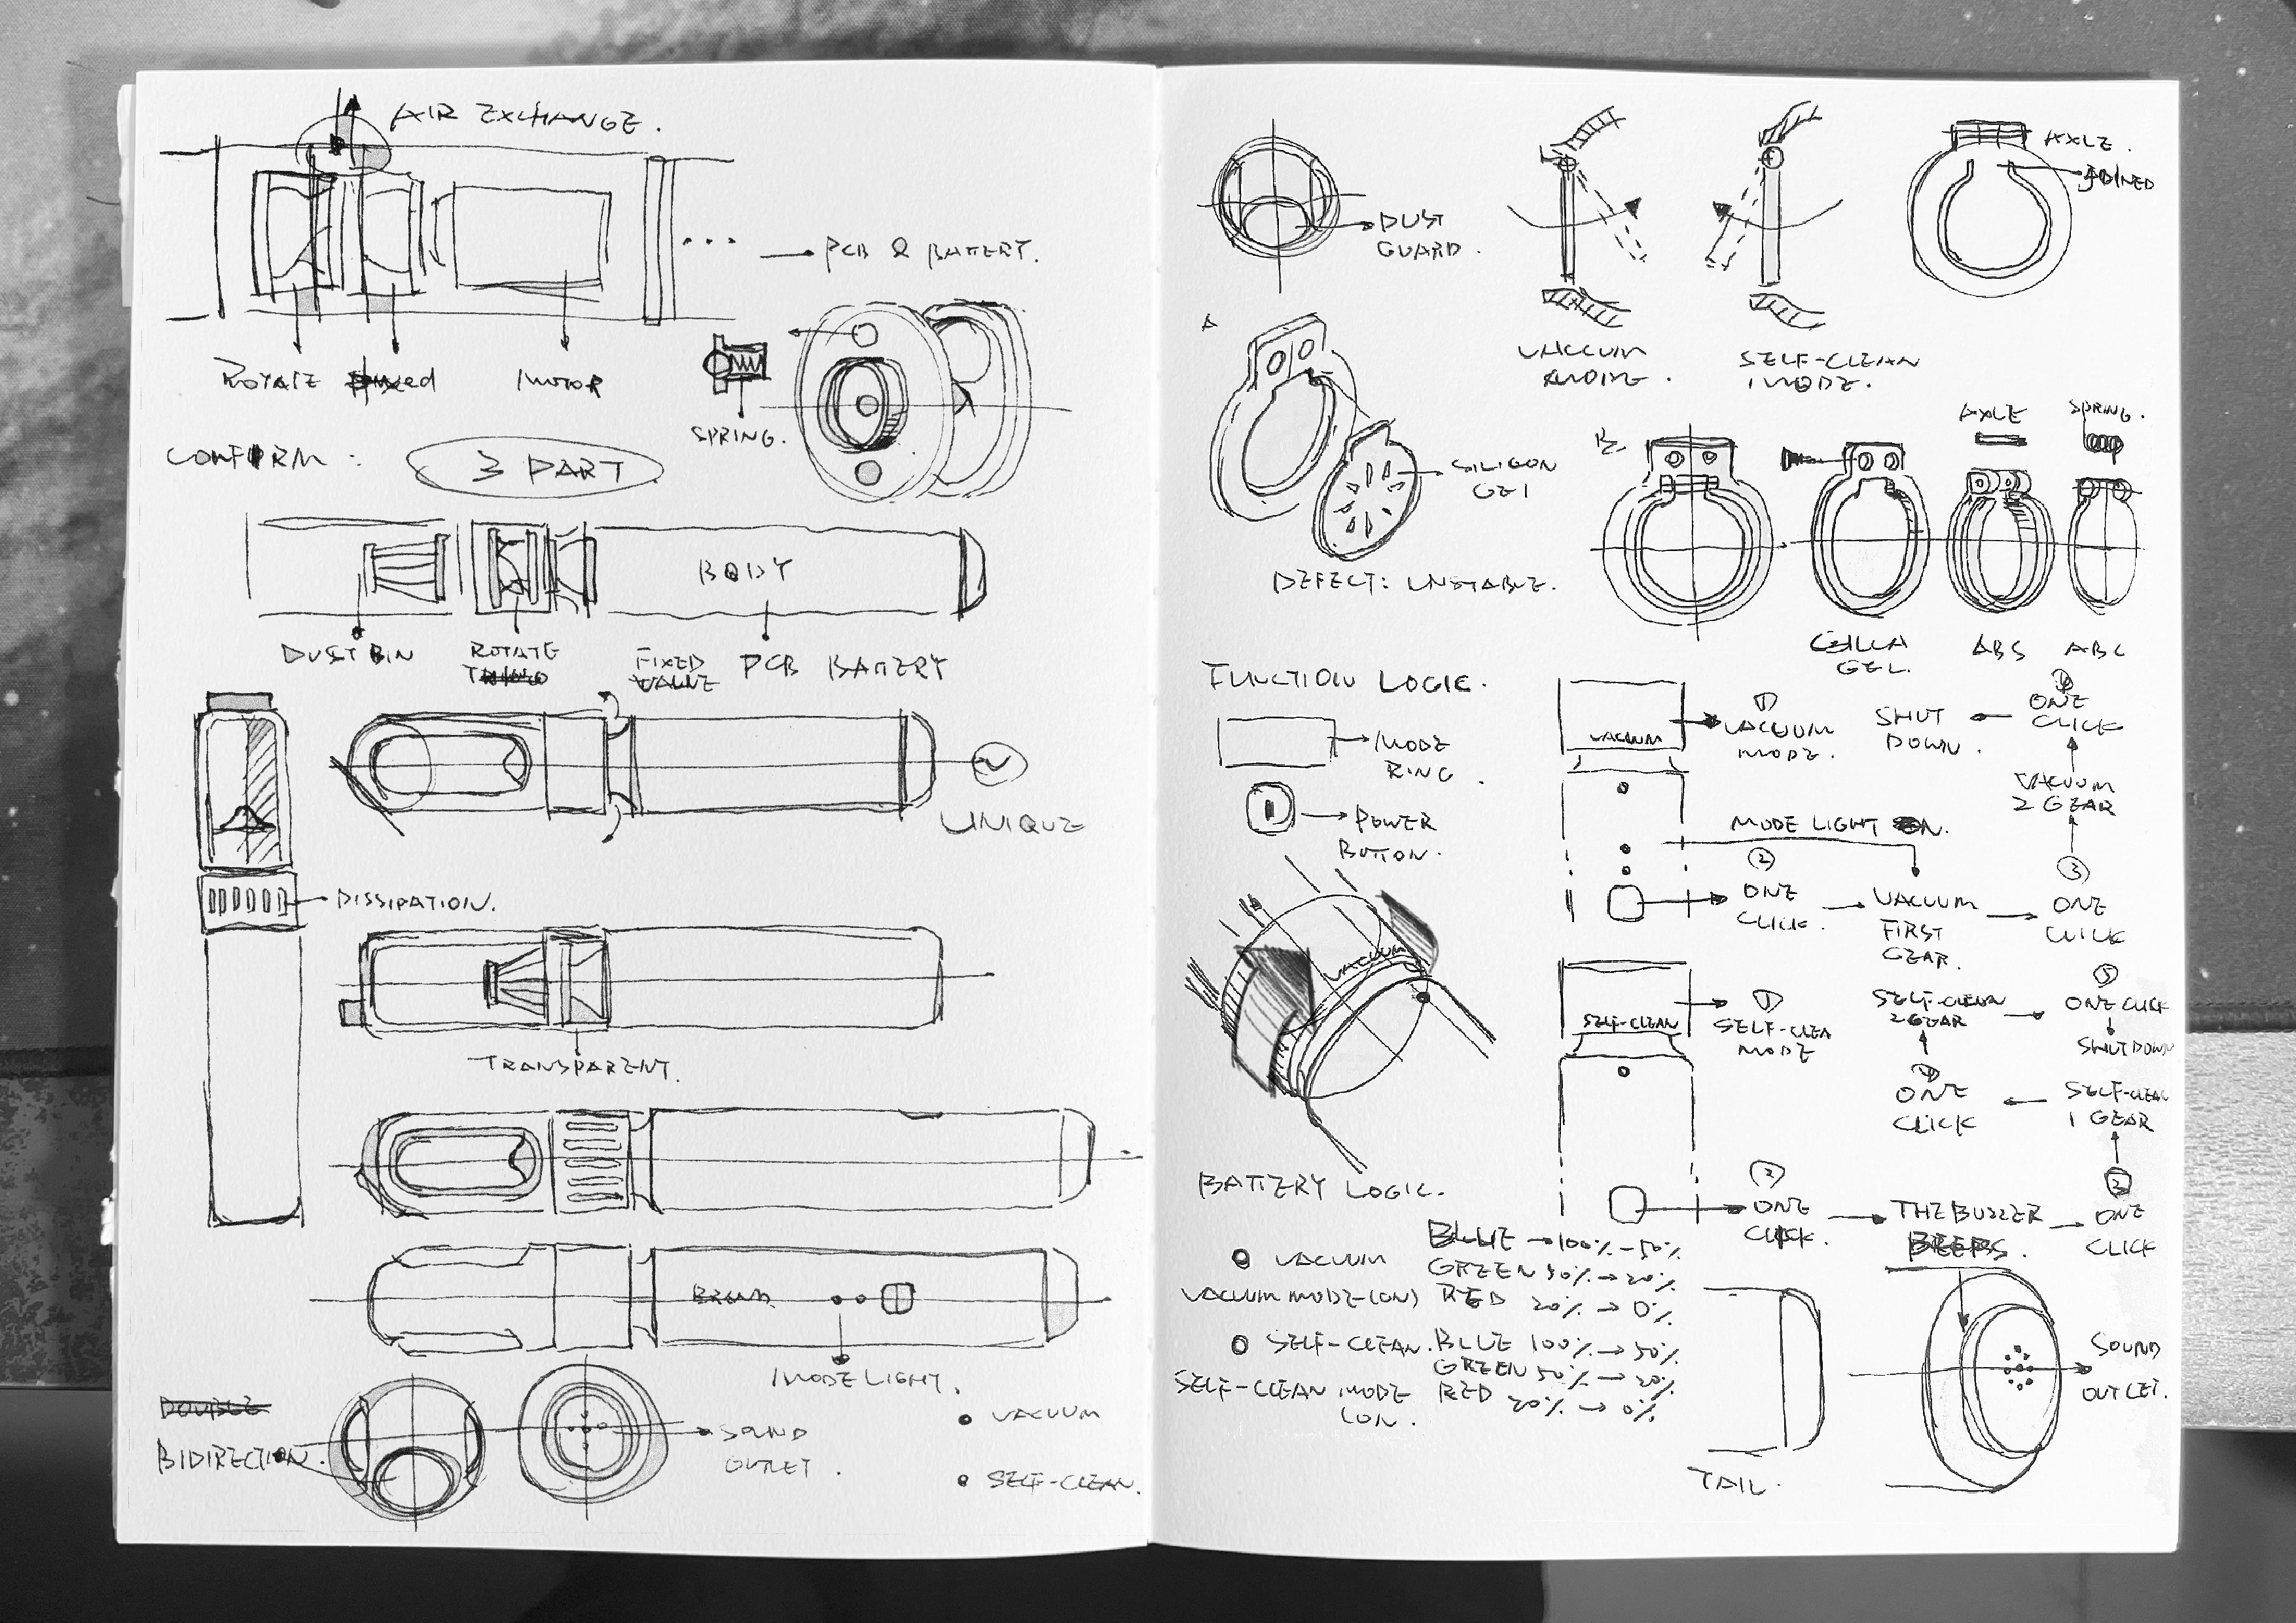 AIR EXCHANGE.
PCB & BATTERY.
ROTATE
MOTOR
SPRING.
CONFIRM:
3 PART
BODY
DUST BIN
ROTATE
FIXED
VALVE
PCB BATTERY
UNIQUE
DISSIPATION.
TRANSPARENT.
MODE LIGHT.
DOUBLE
BIDIRECTION.
SOUND
OUTLET.
VACUUM
SELF-CLEAN.
DUST
GUARD.
VACUUM
MODE.
SELF-CLEAN
MODE.
AXLE.
JOINED
A
SILICON
GEL
DEFECT: UNSTABLE.
B.
AXLE
SPRING.
GEL.
ABS
ABC
FUNCTION LOGIC.
MODE
RING.
POWER
BUTTON.
VACUUM
VACUUM
①
VACUUM
MODE.
SHUT
DOWN.
④
ONE
CLICK
VACUUM
2 GEAR
MODE LIGHT ON.
②
ONE
CLICK.
VACUUM
FIRST
GEAR.
③
ONE
CLICK
SELF-CLEAN
①
SELF-CLEA
MODE
SELF-CLEAN
2 GEAR
⑤
ONE CLICK
SHUT DOWN
④
ONE
CLICK
SELF-CLEAN
1 GEAR
②
ONE
CLICK.
THE BUZZER
BEEPS.
③
ONE
CLICK
BATTERY LOGIC.
VACUUM
VACUUM MODE (ON)
BLUE → 100% - 50%
GREEN 50% → 20%
RED 20% → 0%
SELF-CLEAN.
SELF-CLEAN MODE
(ON.
BLUE 100% → 50%
GREEN 50% → 20%
RED 20% → 0%
TAIL.
SOUND
OUTLET.